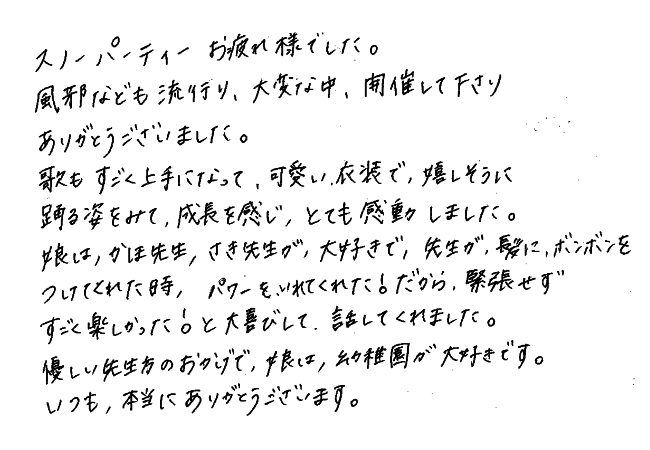 スノーパーティー お疲れ様でした。
風邪なども流行り、大変な中、開催して下さり
ありがとうございました。
歌もすごく上手になって、可愛い衣装で、嬉しそうに
踊る姿をみて、成長を感じ、とても感動しました。
娘は、かほ先生、さき先生が、大好きで、先生が、髪に、ボンボンを
つけてくれた時、パワーをいれてくれた!だから、緊張せず
すごく楽しかった!と大喜びして、話してくれました。
優しい先生方のおかげで、娘は、幼稚園が大好きです。
いつも、本当にありがとうございます。